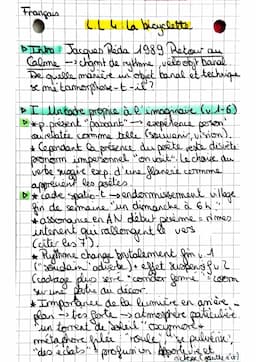 Français
LL4 la bicyclette
▷ Intro : Jacques Réda 1989 Retour au
Calme → changt de rythme, vélo objet banal
De quelle manière un objet banal et technique
se métamorphose-t-il ?
▷ I Un cadre propice à l'imaginaire (v.1-6)
* présent "passant" → expérience person
ou relatée comme telle (souvenir, vision).
* Cependant la présence du poète reste discrète
pronom impersonnel "on voit". Le choix du
verbe suggère exp. d'une flânerie comme
apprécient les poètes
▷ * cadre spatio-t → endormissement village
fin de semaine "un dimanche à 6h"
* assonance en AN début poème = rimes
internent qui rallongent le vers
(citer les 7).
* Rythme change brutalement fin v.1
("soudain" adverbe) + effet suspensif v.2
sur une patte au début
* Importance de la lumière en arrière
plan → très forte → atmosphère particulière
"un torrent de soleil" oxymore +
métaphore filée "roule", "se pulvérise",
"des éclats"